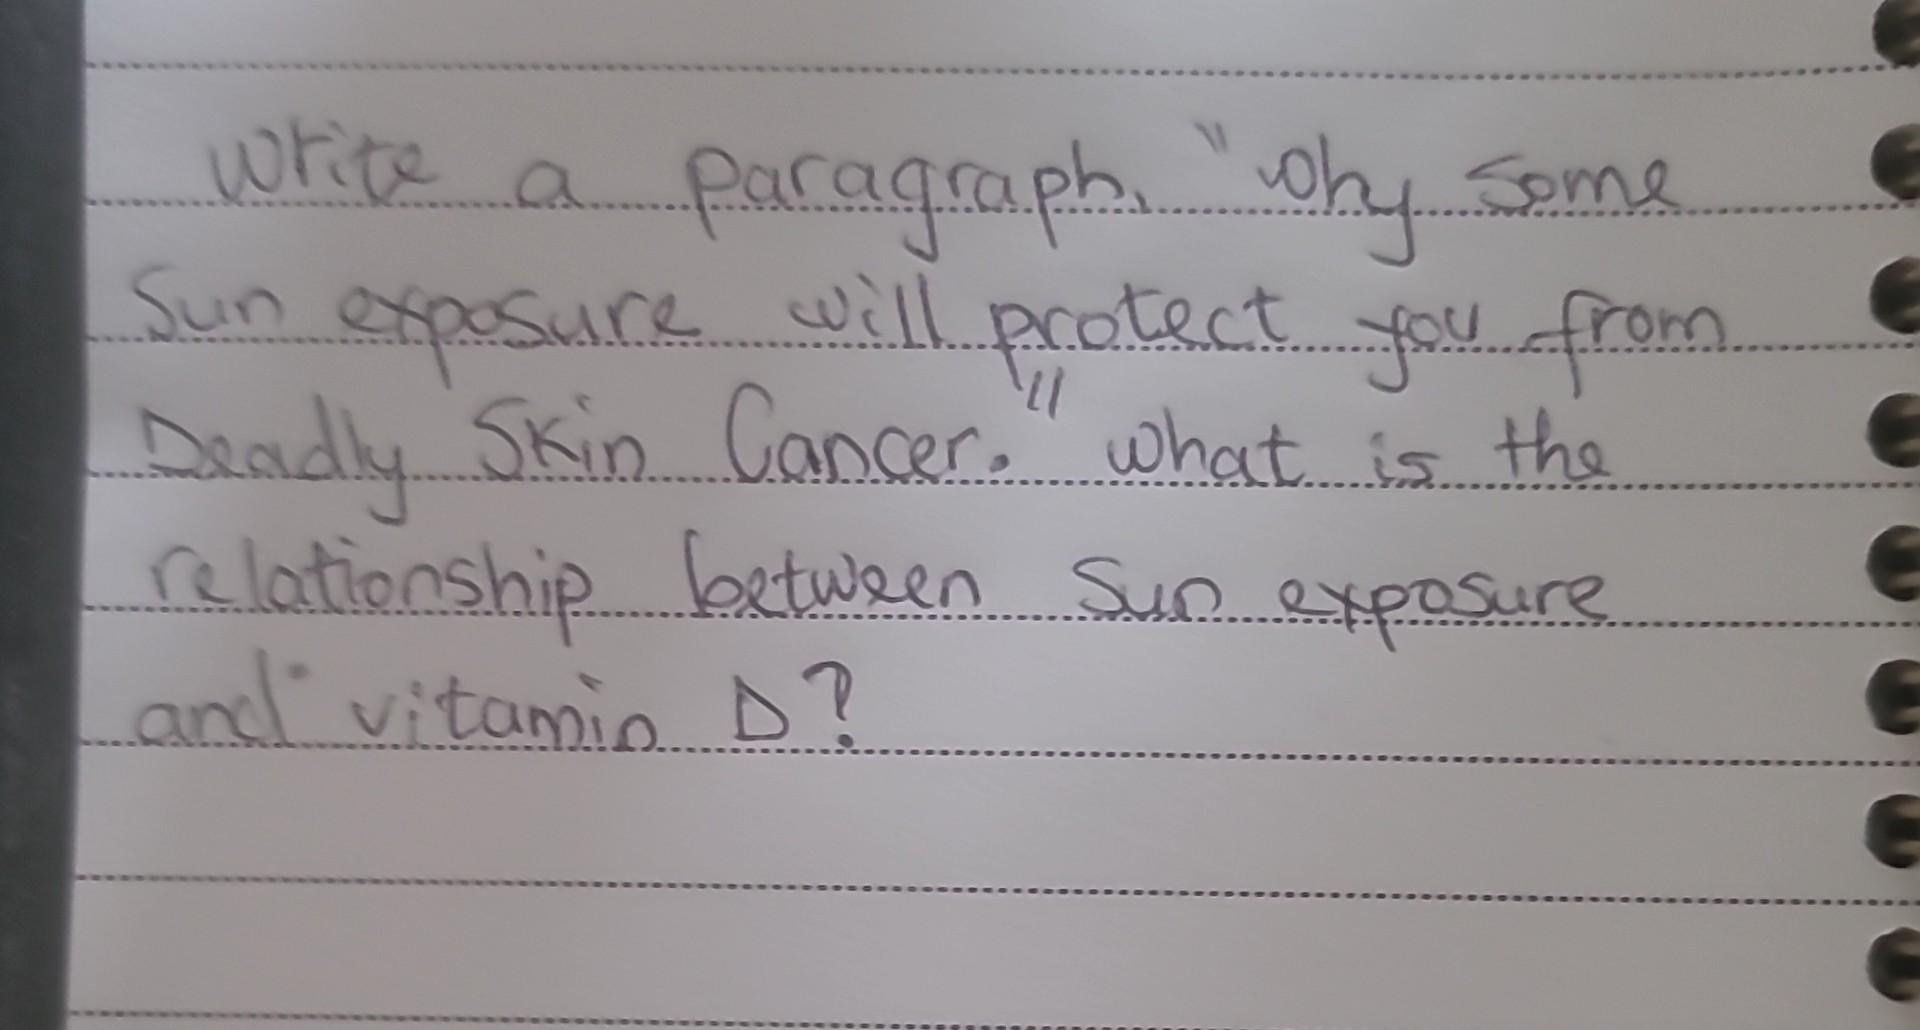 Write a paragraph, "Why some
Sun exposure will protect you from
Deadly Skin Cancer." What is the
relationship between Sun exposure
and vitamin D?